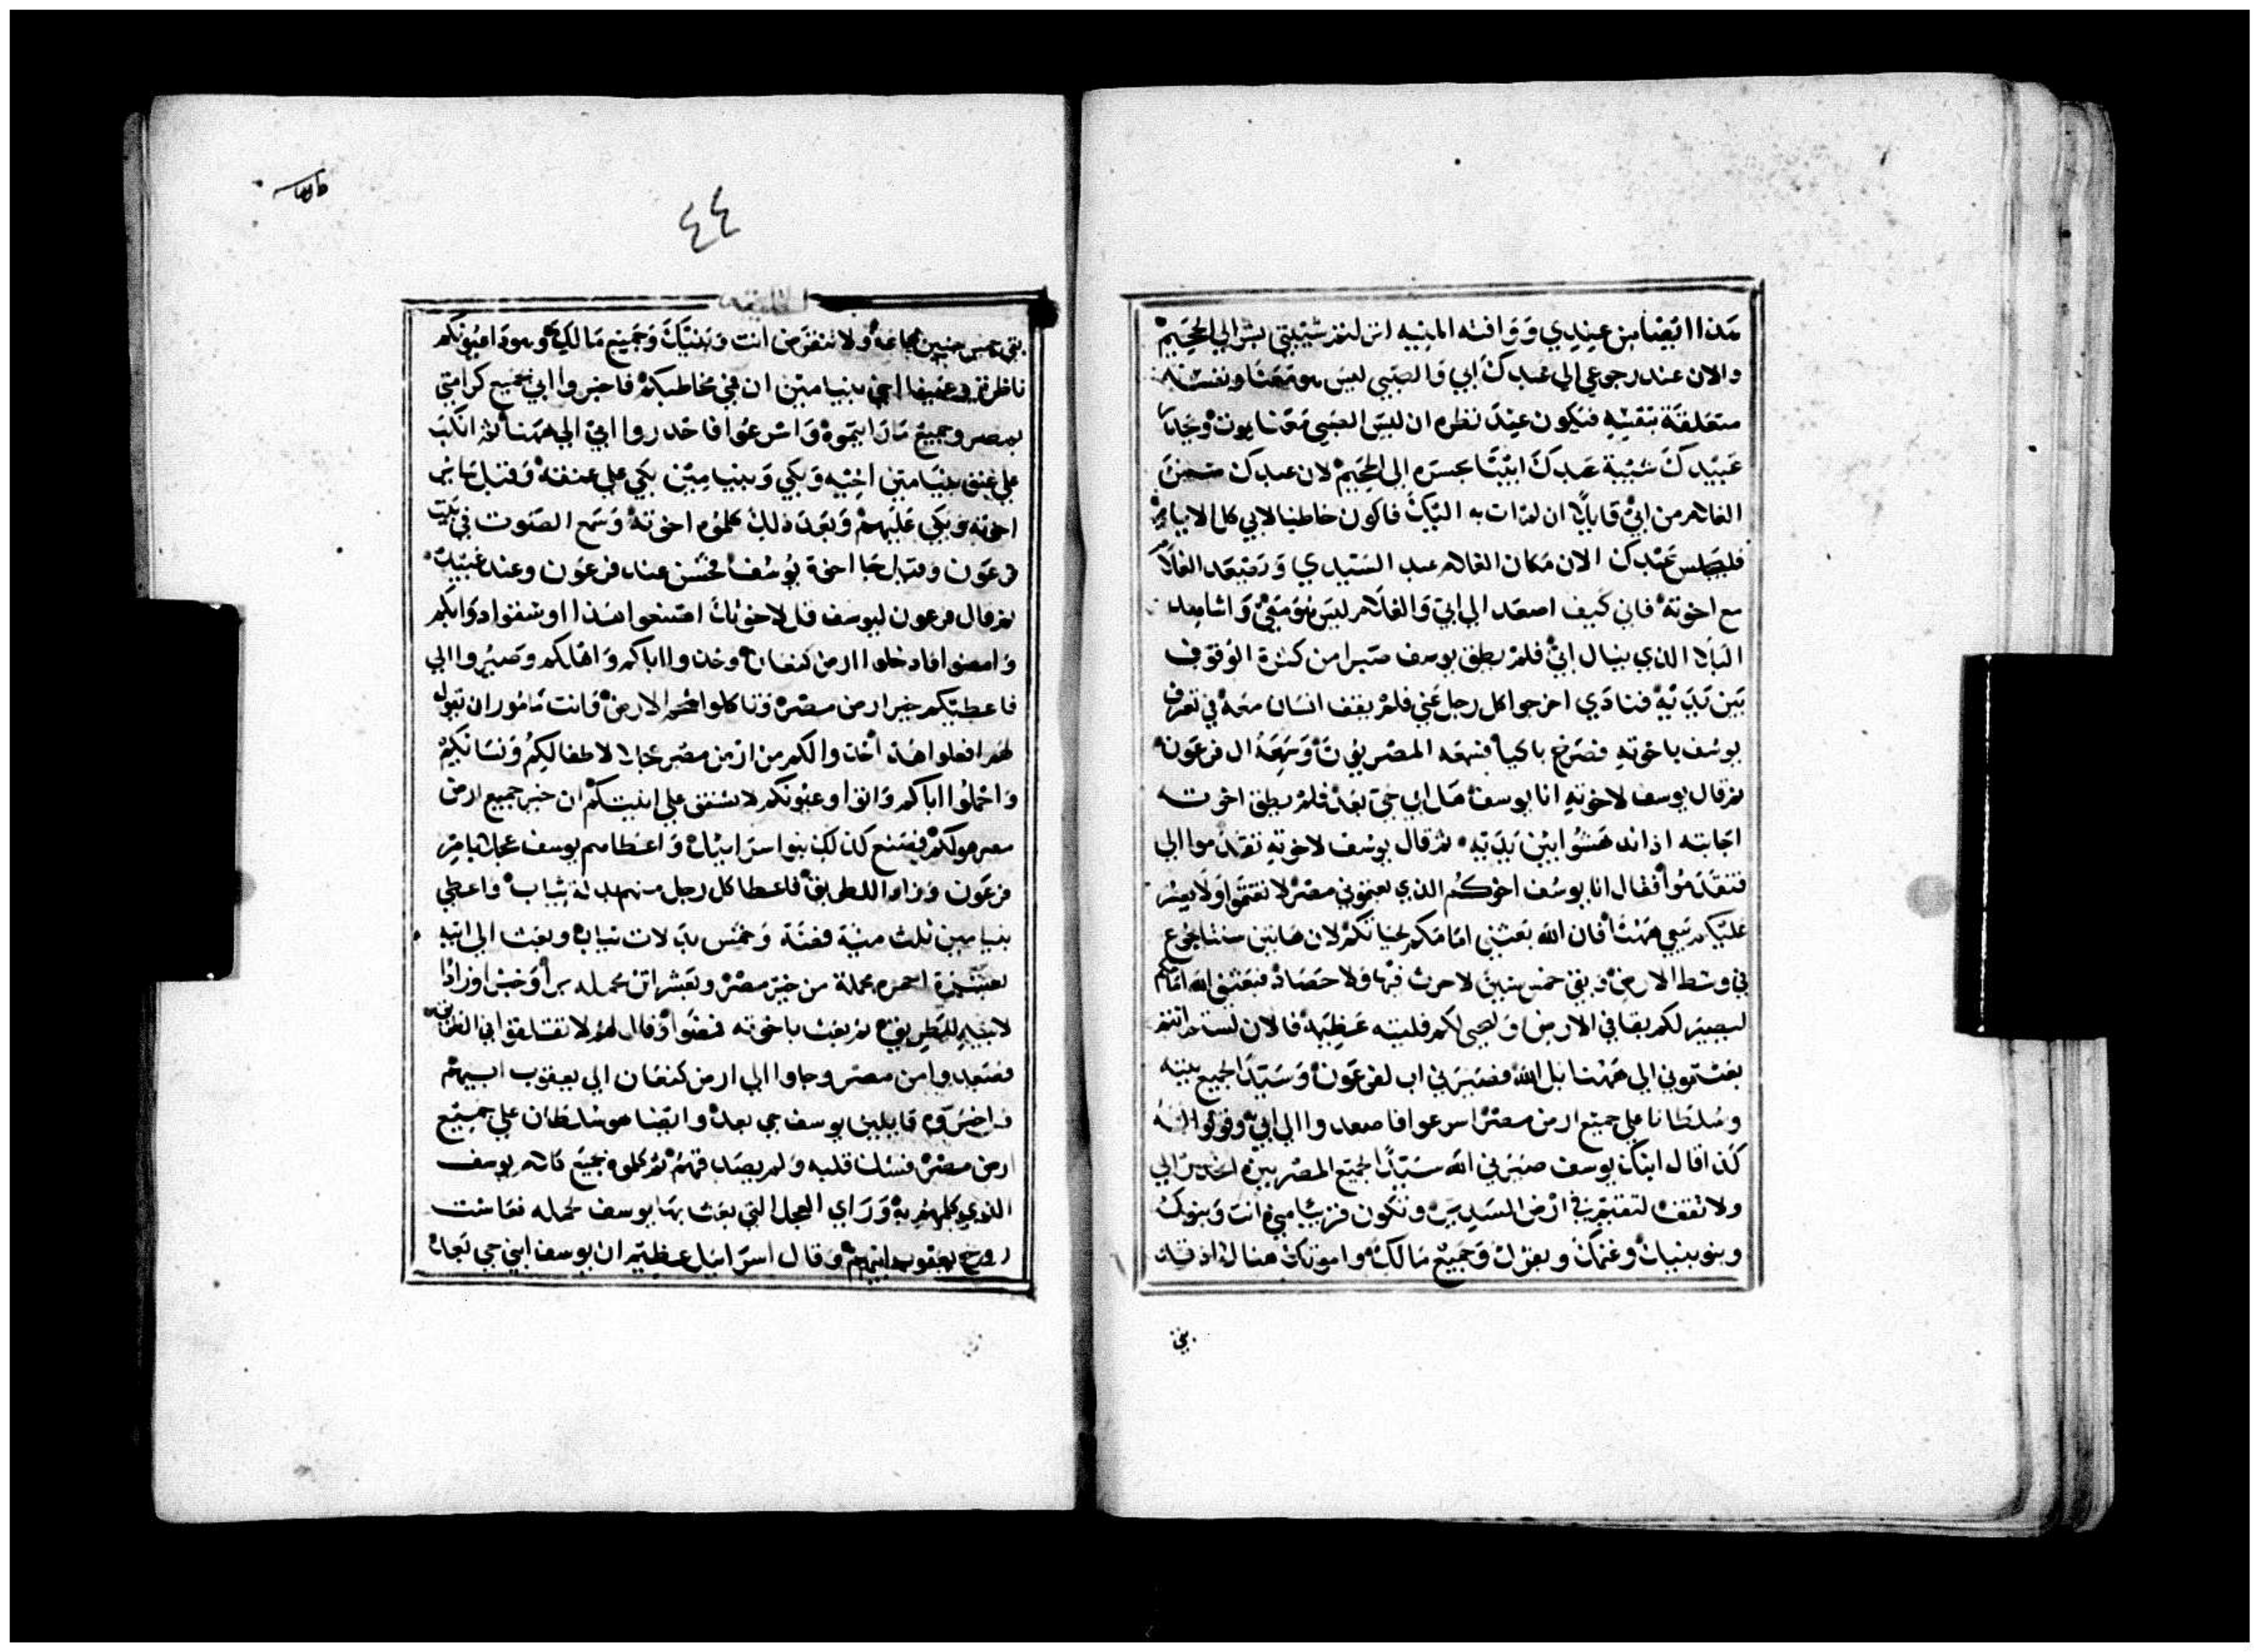 هذا ايضا من عندي ووافته المنيه انزلتم شيبتي بشر الي الجحيم
والان عند رجوعي الي عبدك ابي والصبي ليس هو معنا ونفسه
متعلقة بنفسه فيكون عند نظره ان ليس الصبي معنا يموت وحدر
عبيدك شيبة عبدك ابينا بحسره الي الجحيم لان عبدك ضمن
الغلام من ابي قايلا ان لم ات به اليك فاكون خاطيا لابي كل الايام
فليجلس عبدك الان مكان الغلام عبد السيدي ويصعد الغلام
مع اخوته فاني كيف اصعد الي ابي والغلام ليس هو معي واشاهد
البلا الذي ينال ابي فلم يطق يوسف صبرا من كثرة الوقوف
بين يديه فنادي اخرجوا كل رجل عني فلم يقف انسان معه في تعرف
يوسف باخوته فصرخ باكيا فسمعه المصريون وسمعه ال فرعون
ثم قال يوسف لاخوته انا يوسف هل ابي حي بعد فلم يطق اخوته
اجابته اذ اندهشوا بين يديه ثم قال يوسف لاخوته تقدموا الي
فتقدموا فقال انا يوسف اخوكم الذي بعتموني مصر لا تغتموا ولا يعسر
عليكم بيعي ههنا فان الله بعثني امامكم لحياتكم لان هاتين سنتا جوع
في وسط الارض وبقي خمس سنين لا حرث فيها ولا حصاد فبعثني الله امامكم
ليصير لكم بقا في الارض ويحيي لكم فليته عظيمه فالان لستم انتم
بعثتموني الي ههنا بل الله فصيرني اب لفرعون وسيد الجميع بيته
وسلطانا علي جميع ارض مصر اسرعوا فاصعدوا الي ابي وقولوا له
كذا قال ابنك يوسف صيرني الله سيدا لجميع المصريين انحدر الي
ولا تقف لتقيم في ارض السدير وتكون قريبا مني انت وبنوك
وبنو بنيك وغنمك وبقرك وجميع مالك وامونك هنالك اذ قد
بقي
٤٤
بقي خمس سنين مجاعة ولا تنقرض انت وبنيك وجميع مالك وهوذا عيونكم
ناظره وعينا اخي بنيامين ان في مخاطبكم فاخبروا ابي بجميع كرامتي
بمصر وجميع ما رايتموه واسرعوا فاحدروا ابي الي ههنا ثم انكب
علي عنق بنيامين اخيه وبكي وبنيامين بكي علي عنقه وقبل ساير
اخوته وبكي عليهم وبعد ذلك كلموه اخوته وسمع الصوت في بيت
فرعون وقيل جا اخوة يوسف فحسن عند فرعون وعند عبيده
ثم قال فرعون ليوسف قل لاخوتك اصنعوا هذا اوسقوا دوابكم
وامضوا فادخلوا ارض كنعان وخذوا اباكم واهلكم وصيروا الي
فاعطيكم خير ارض مصر وتاكلوا شحم الارض وانت مامور ان تقول
لهم افعلوا هذه خذوا لكم من ارض مصر عجلا لاطفالكم ونسائكم
واحملوا اباكم واتوا وعيونكم لا تشفق علي انيتكم ان خير جميع ارض
مصر هو لكم فصنع كذلك بنوا اسرائيل واعطاهم يوسف عجلا بامر
فرعون وزاد للطريق فاعطا كل رجل منهم بدلة ثياب واعطي
بنيامين ثلث مية فضة وخمس بدلات ثياب وبعث الي ابيه
بعشرة احمره محملة من خير مصر وبعشر اتن محمله برا وخبزا وزادا
لابيه للطريق ثم بعث باخوته فمضوا وقال لهم لا تتشاقوا في الطريق
فصعدوا من مصر وجاوا الي ارض كنعان الي يعقوب ابيهم
واخبروه قايلين يوسف حي بعد وايضا هو سلطان علي جميع
ارض مصر فشك قلبه ولم يصدقهم ثم كلموه بجميع كلام يوسف
الذي كلمهم به وراي العجل التي بعث بها يوسف لحمله فعاشت
روح يعقوب ابيهم وقال اسرائيل عظيم ان يوسف ابني حي بعد